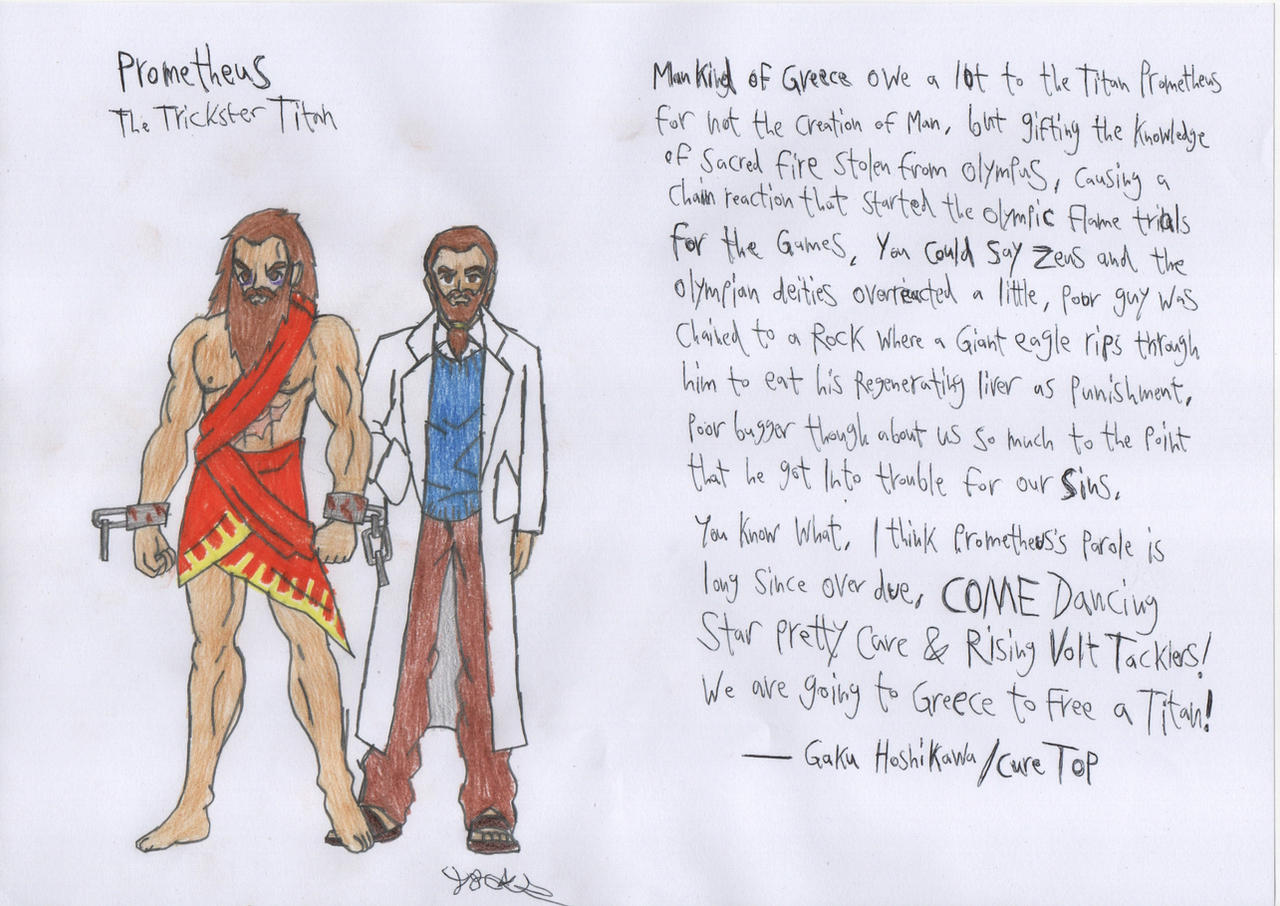 Prometheus
The Trickster Titan
Mankind of Greece owe a lot to the Titan Prometheus
for not the Creation of Man, but gifting the Knowledge
of Sacred fire Stolen from Olympus, Causing a
Chain reaction that Started the Olympic flame trials
for the Games, You Could Say Zeus and the
Olympian deities overreacted a little, Poor guy was
Chained to a Rock Where a Giant eagle rips through
him to eat his Regenerating liver as Punishment,
Poor bugger though about us so much to the Point
that he got Into trouble for our Sins.
You Know What, I think Prometheus's Parole is
long Since over due, COME Dancing
Star Pretty Cure & Rising Volt Tacklers!
We are going to Greece to Free a Titan!
— Gaku Hoshikawa/Cure Top